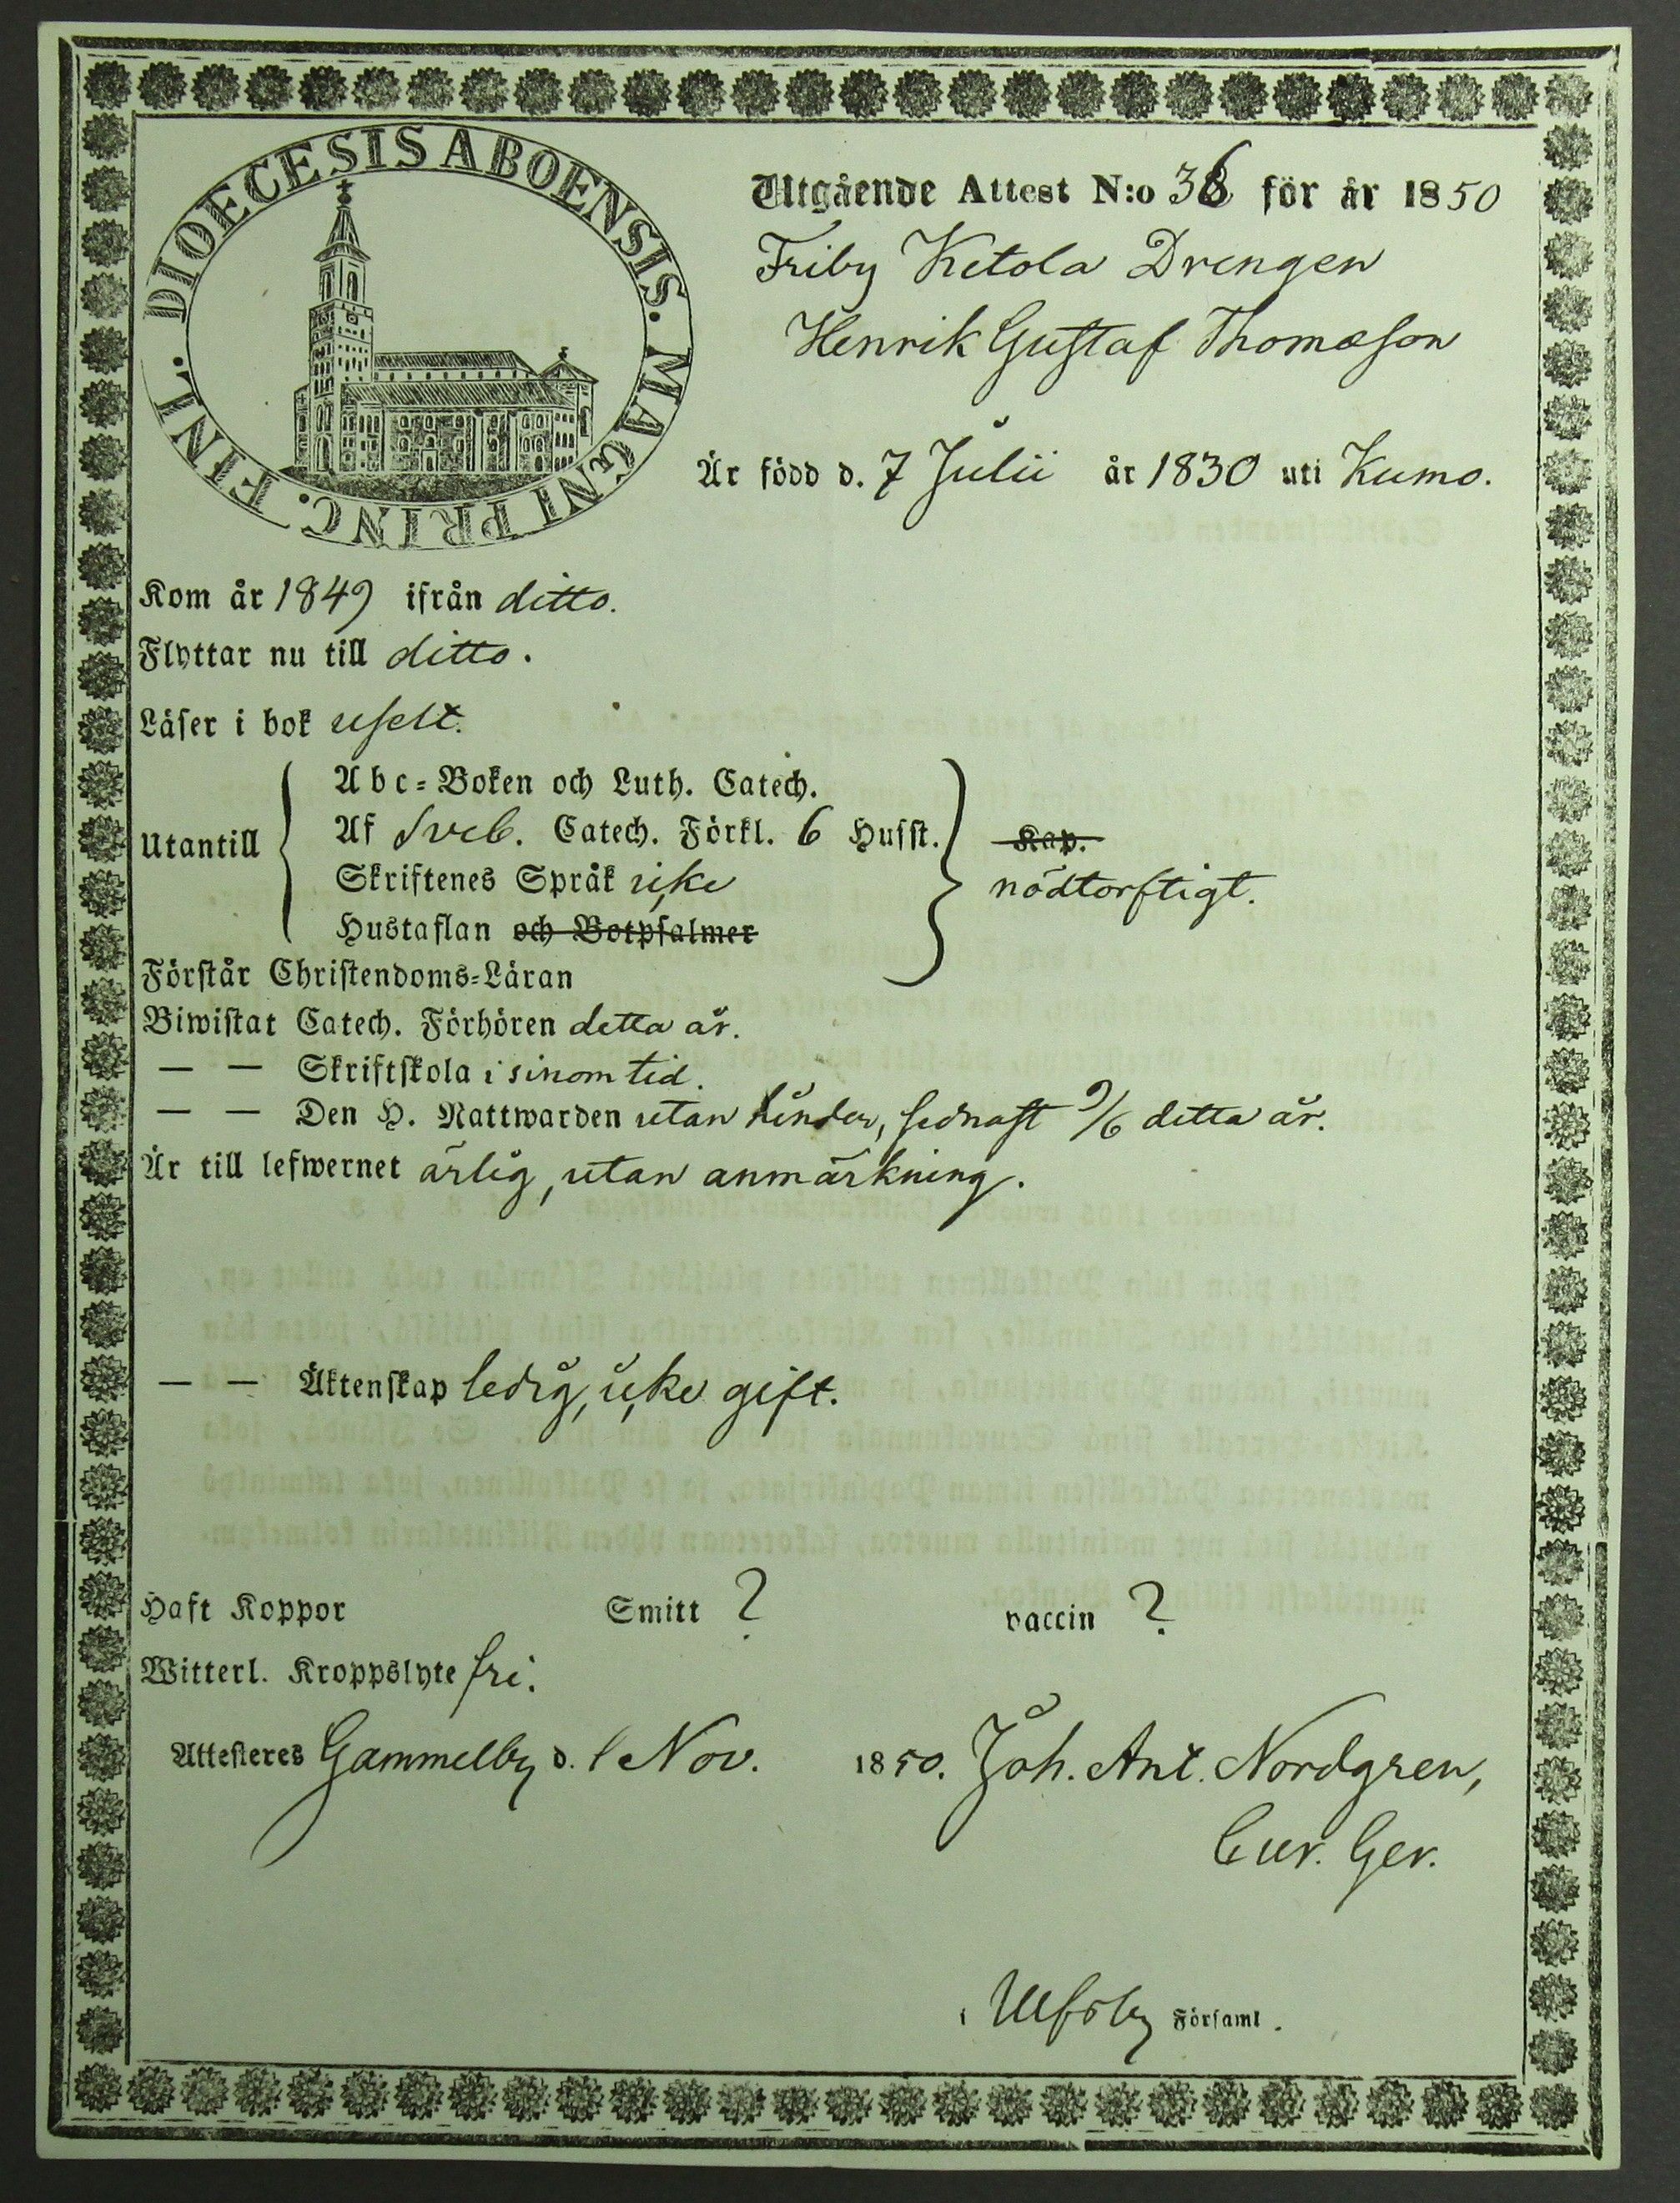 DIOECESIS ABOENSIS. MAGNI PRINC. FINL.
Utgående Attest N:o 36 för år 1850
Friby Ketola Drengen
Henrik Gustaf Thomasson
Är född d. 7 Julii år 1830 uti Kumo.
Kom år 1849 ifrån ditto.
Flyttar nu till ditto.
Läser i bok uselt.
Utantill
Abc-Boken och Luth. Catech.
Af Sveb. Catech. Förkl. 6 Husst.
Kap.
Skriftenes Språk icke
nödtorftigt.
Hustaflan och Botpsalmer
Förstår Christendoms-Läran
Biwistat Catech. Förhören detta år.
— — Skriftskola i sinom tid.
— — Den H. Nattwarden utan hinder, sednast 9/6 detta år.
Är till lefwernet ärlig, utan anmärkning.
— — Äktenskap ledig, icke gift.
Haft Koppor Smitt ? vaccin ?
Witterl. Kroppslyte fri.
Attesteres Gammelby d. 1 Nov. 1850. Joh. Ant. Nordgren,
Cur. Ger.
i Ulfsby Församl.